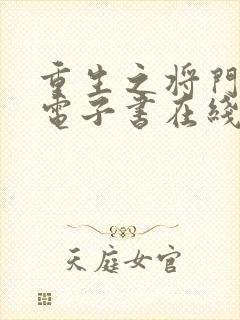 重生之将門
電子書在綫
天庭女官